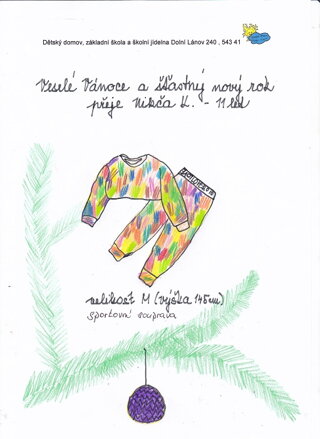 Dětský domov, základní škola a školní jídelna Dolní Lánov 240 , 543 41
Veselé Vánoce a šťastný nový rok
přeje Nikča K. - 11 let
velikost M (výška 145cm)
sportovní souprava